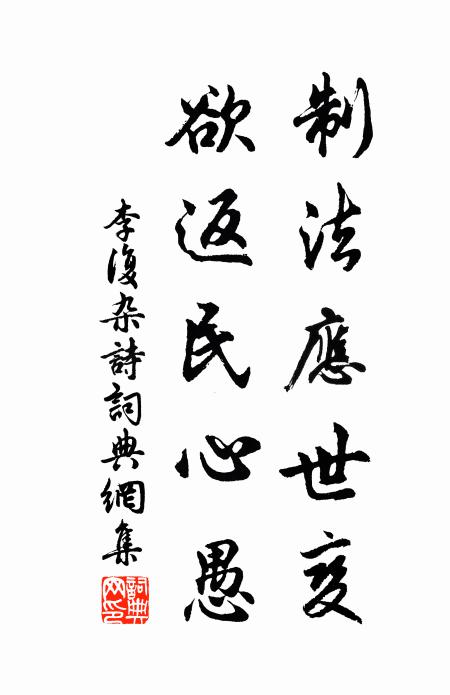 制法應世变
欲返民心愚
李復杂詩詞典網集
詞典網印